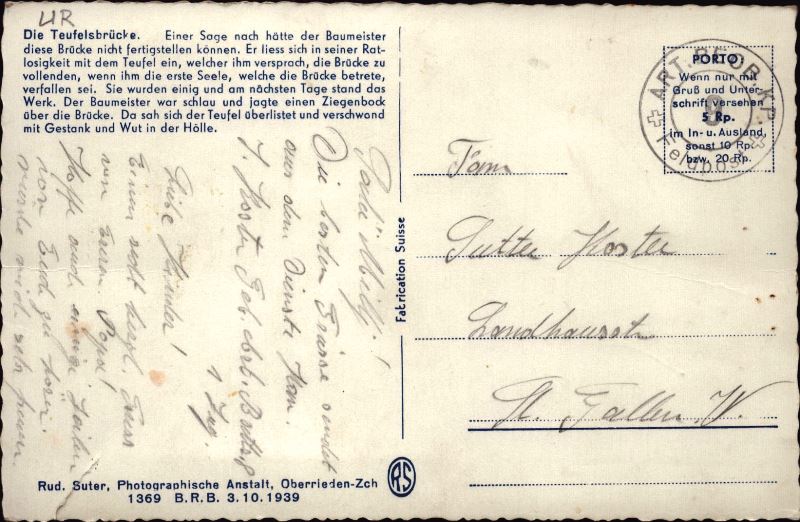 UR
Die Teufelsbrücke. Einer Sage nach hätte der Baumeister
diese Brücke nicht fertigstellen können. Er liess sich in seiner Rat-
losigkeit mit dem Teufel ein, welcher ihm versprach, die Brücke zu
vollenden, wenn ihm die erste Seele, welche die Brücke betrete,
verfallen sei. Sie wurden einig und am nächsten Tage stand das
Werk. Der Baumeister war schlau und jagte einen Ziegenbock
über die Brücke. Da sah sich der Teufel überlistet und verschwand
mit Gestank und Wut in der Hölle.
Die besten Grüsse sendet
aus dem Dienste
Liebe Kinder!
Einen recht herzl. Gruss
von Eurem Papa!
Hoffe auch einige Zeilen
von Euch zu
würde mich sehr freuen
Fabrication Suisse
PORTO
Wenn nur mit
Gruß und Unter-
schrift versehen
5 Rp.
im In- u. Ausland,
sonst 10 Rp.
bzw. 20 Rp.
ART. BEOB. KP.
9
Feldpost
Fam
Koster
Landhausstr
St. Gallen W.
Rud. Suter, Photographische Anstalt, Oberrieden-Zch
1369 B.R.B. 3.10.1939
RS